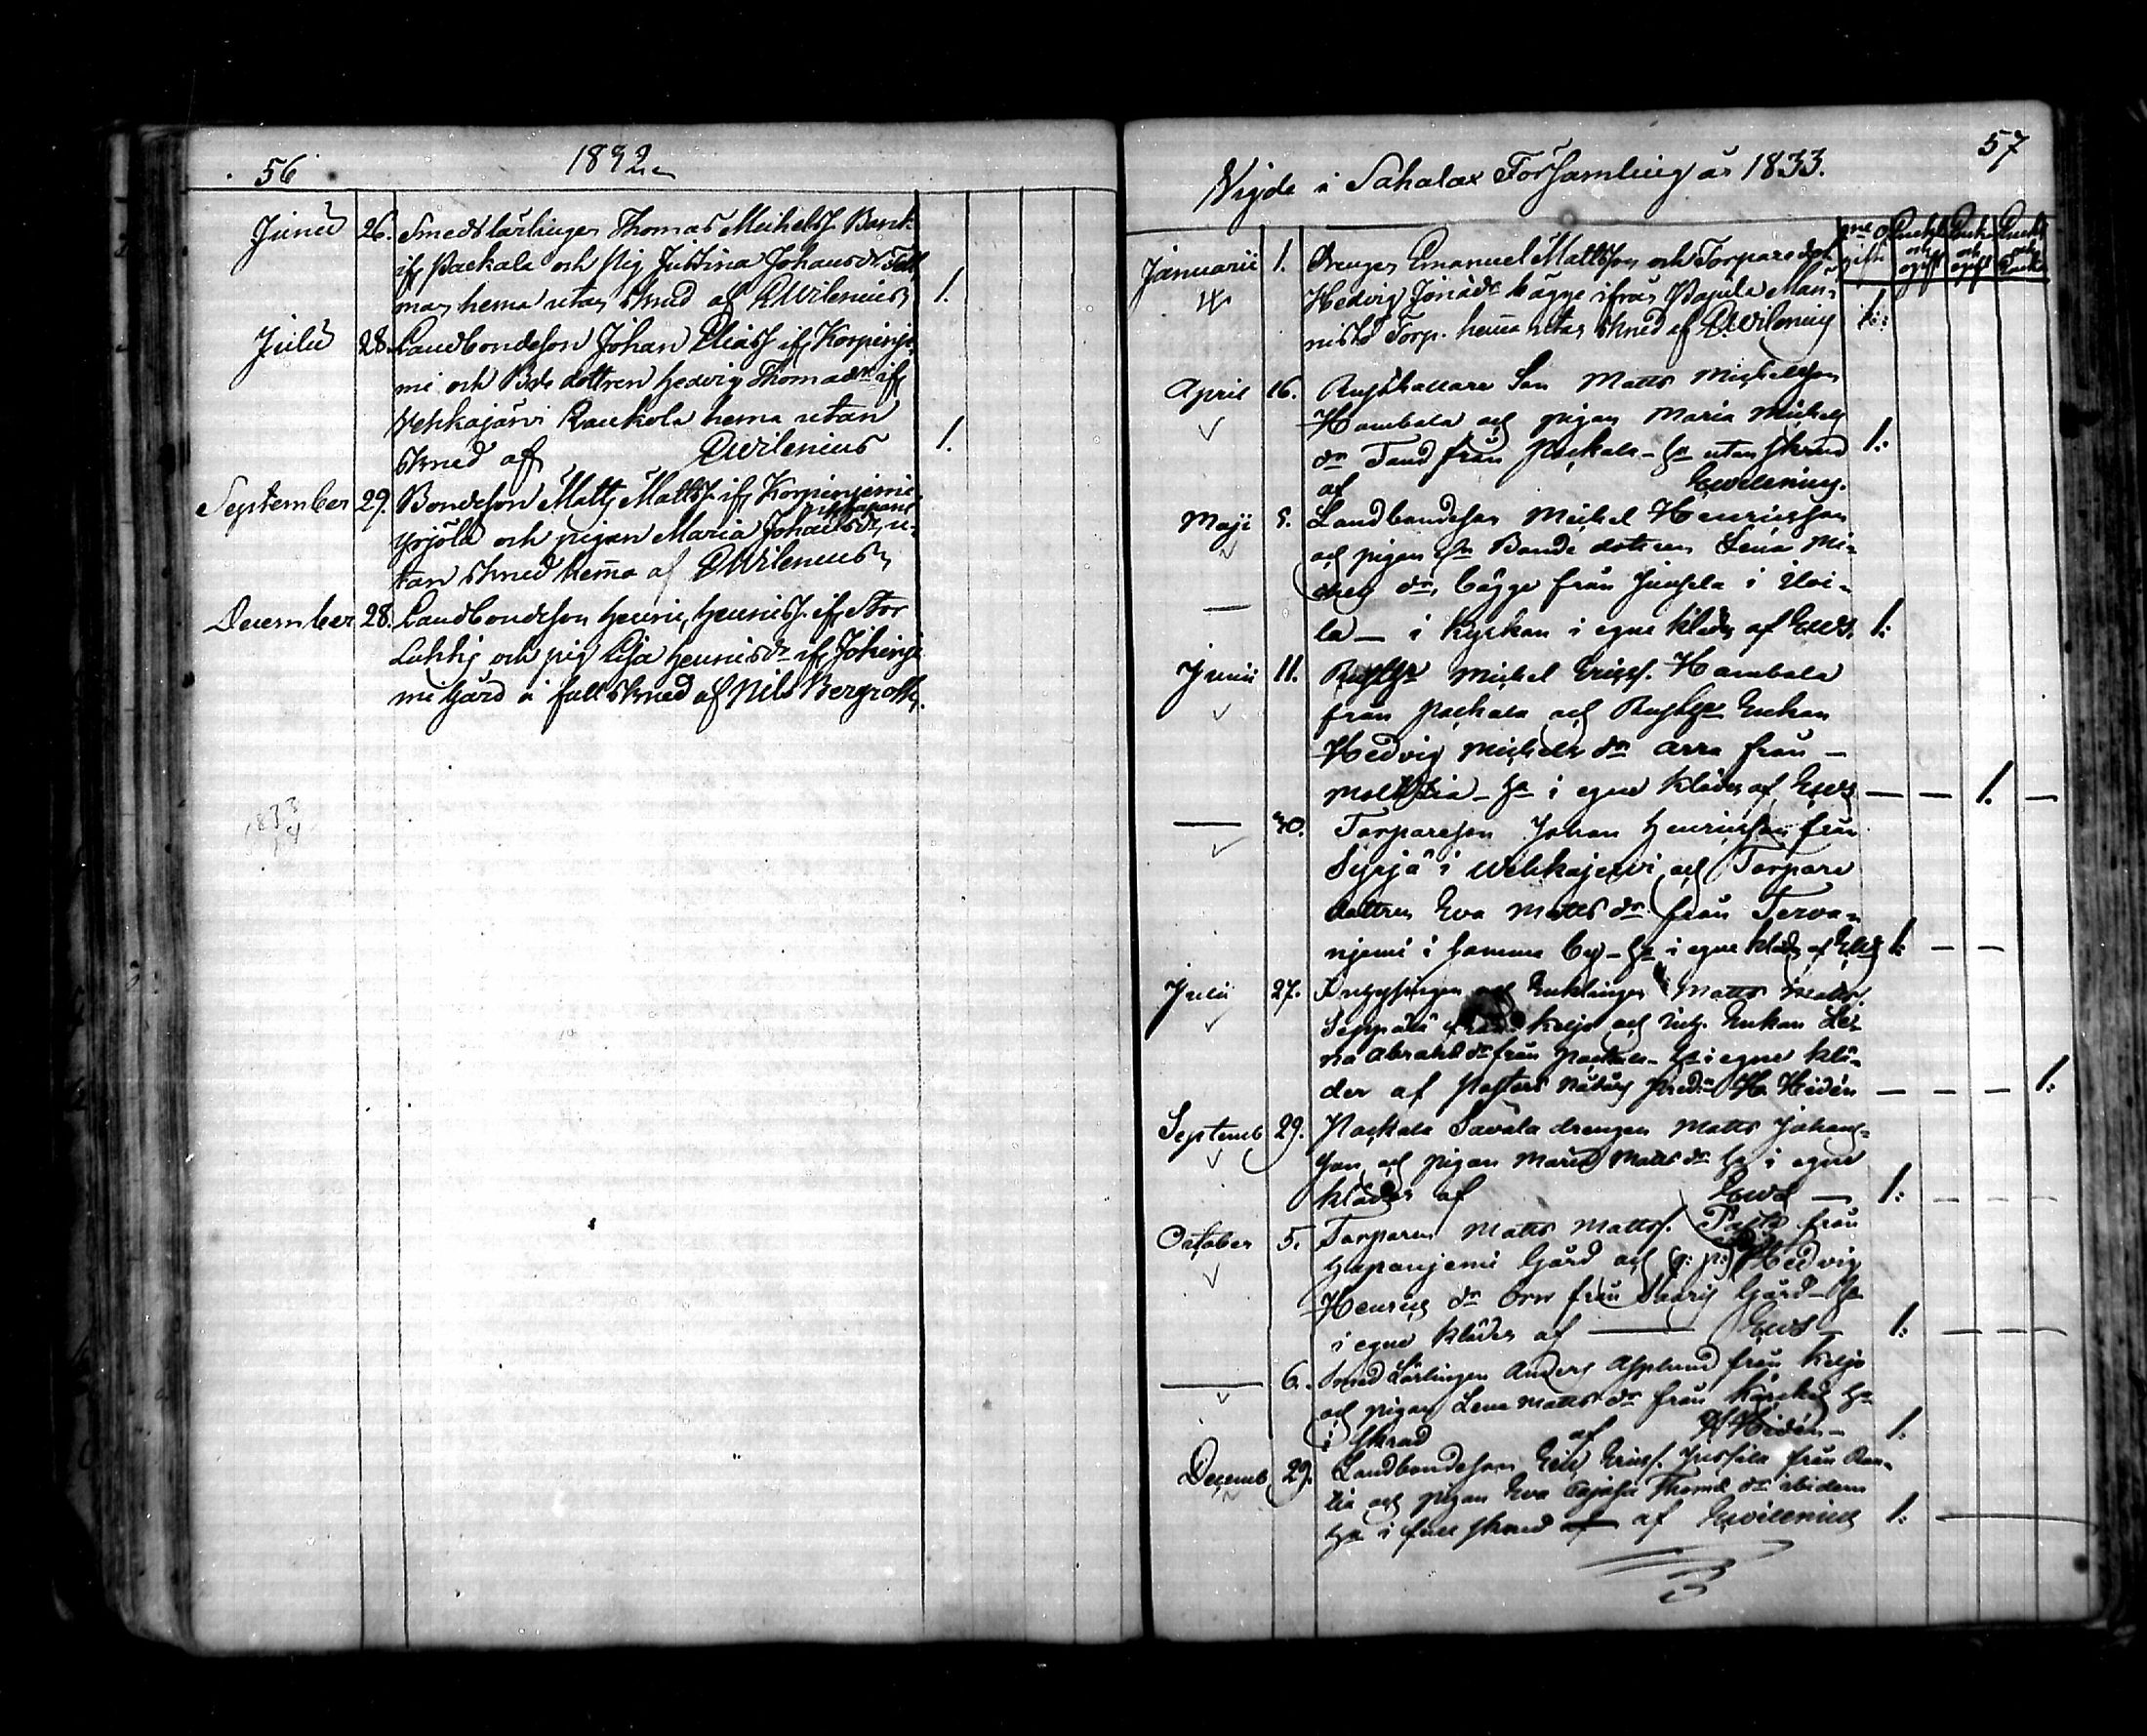 56
1832
Junii 26. Smedslärlingen Thomas Michelsf. Bank
ifr Packala och pig Justina Johansdr Tall
man hema utan skrud af EWilenius 1.
Julii 28. Landbondeson Johan Eliasf ifr Korpinje
mi och Bde dottren Hedvig Thomædr ifr
Vehkajärvi Raukola hema utan
skrud af EWilenius 1.
September 29. Bondeson Matts Mattsf. ifr Korpiniemi
Yrjölä och pigan Maria Johansdr, u-
tan skrud hema af EWilenius
December 28. Landbondeson Henric Henricsf. ifr Stor
Lahtis och pig Caisa Henricsdr ifr Jokinje
mi Gård i full skrud af Nils Bergroth.
1833
57
Vigde i Sahalax Församling år 1833.
Januarii 1. Drengen Emanuel Mattsson och Torparedott
Hedvig Jonædr bägge ifrån Pajula Man-
nisto Torp. hema utan skrud af EWilenius 1:
April 16. Rusthållare Son Matts Michelsson
Hambala och pigan Maria Michels
dr Tand från Packala - ha utan skrud 1:
af EWilenius.
Maji 5. Landbondeson Michel Henricsson
och pigan Bonde dottren Lena Mi-
chels dr, bägge från Junsela i Ilvi-
la — i kyrkan i egne kläder af EWs. 1:
Junii 11. Michel Ericsf. Hambala
från Packala och Enkan
Hedvig Michels dr Arra från —
Moltsia - ha i egne kläder af EWs — — 1. —
— 30. Torpareson Johan Henricsson från
Syrjä i Wehkajervi och Torpare
dottren Eva Matts dr från Terva-
njemi i samma by - ha i egne kläder af EWs 1: — —
Julii 27. och Enklingen Matts Mattsf.
Seppälä från Keljo och Enkan Le-
na Abrahs dr från Packala - ha i egne klä-
der af Pastors H. Hidén — — — 1:
Septemb 29. Packala Savala drengen Matts Johans-
son och pigan Maria Matts dr ha i egne
kläder af EWs — 1: — — —
October 5. Torparen Matts Mattsf. från
Hapanjemi Gård och Hedvig
Henrics dr Orr från Saaris Gård - ha
i egne kläder af — EWs — 1: — — —
— 6. Smed Lärlingen Anders Asplund från Keljo
och pigan Lena Matts dr från ha
i skrud af H Hidén — 1:
Decemb 29. Landbondeson Eric Ericsf. från
och pigan Eva Thomæ dr ibidem
ha i full skrud af EWilenius 1: —